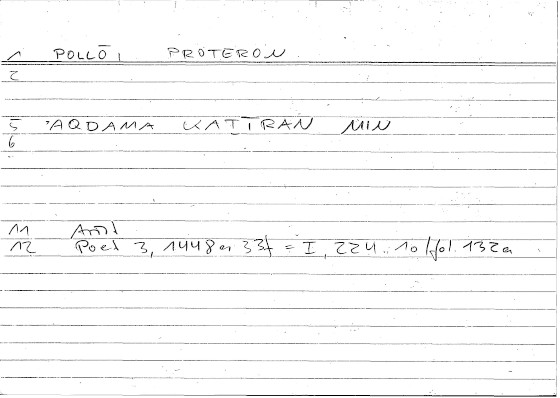 1 POLLŌI PROTERON
2
5 'AQDAMA KAṮĪRAN MIN
6
11 Arist
12 Poet 3, 1448a 33f = I, 224..10/fol. 132a